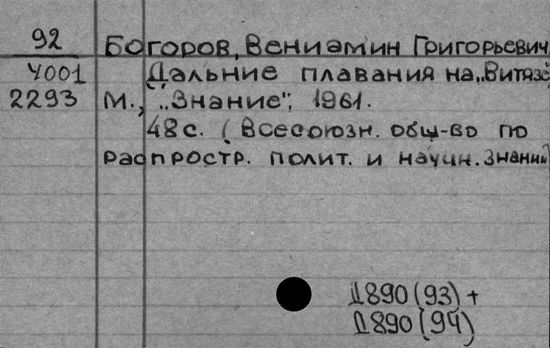 92 Богоров, Вениамин Григорьевич
У001 Дальние плавания на „Витязе
2293 М., „Знание", 1961.
48с. (Всесоюзн. общ-во по
распростр. полит. и научн. знаний
Д890(93) +
Д890(94)